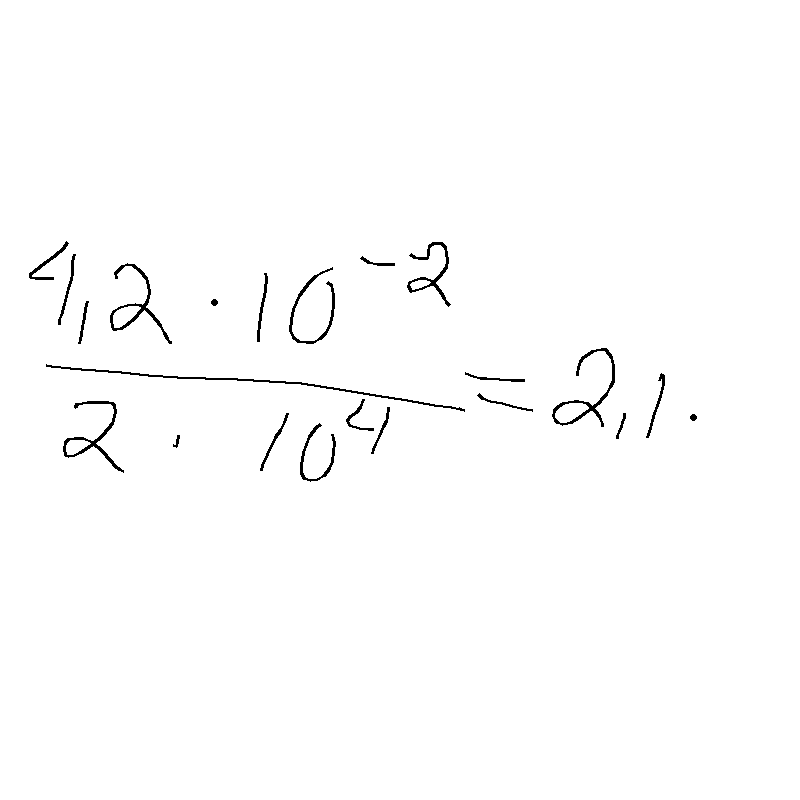 4,2 · 10⁻²
2 · 10⁴
= 2,1 ·